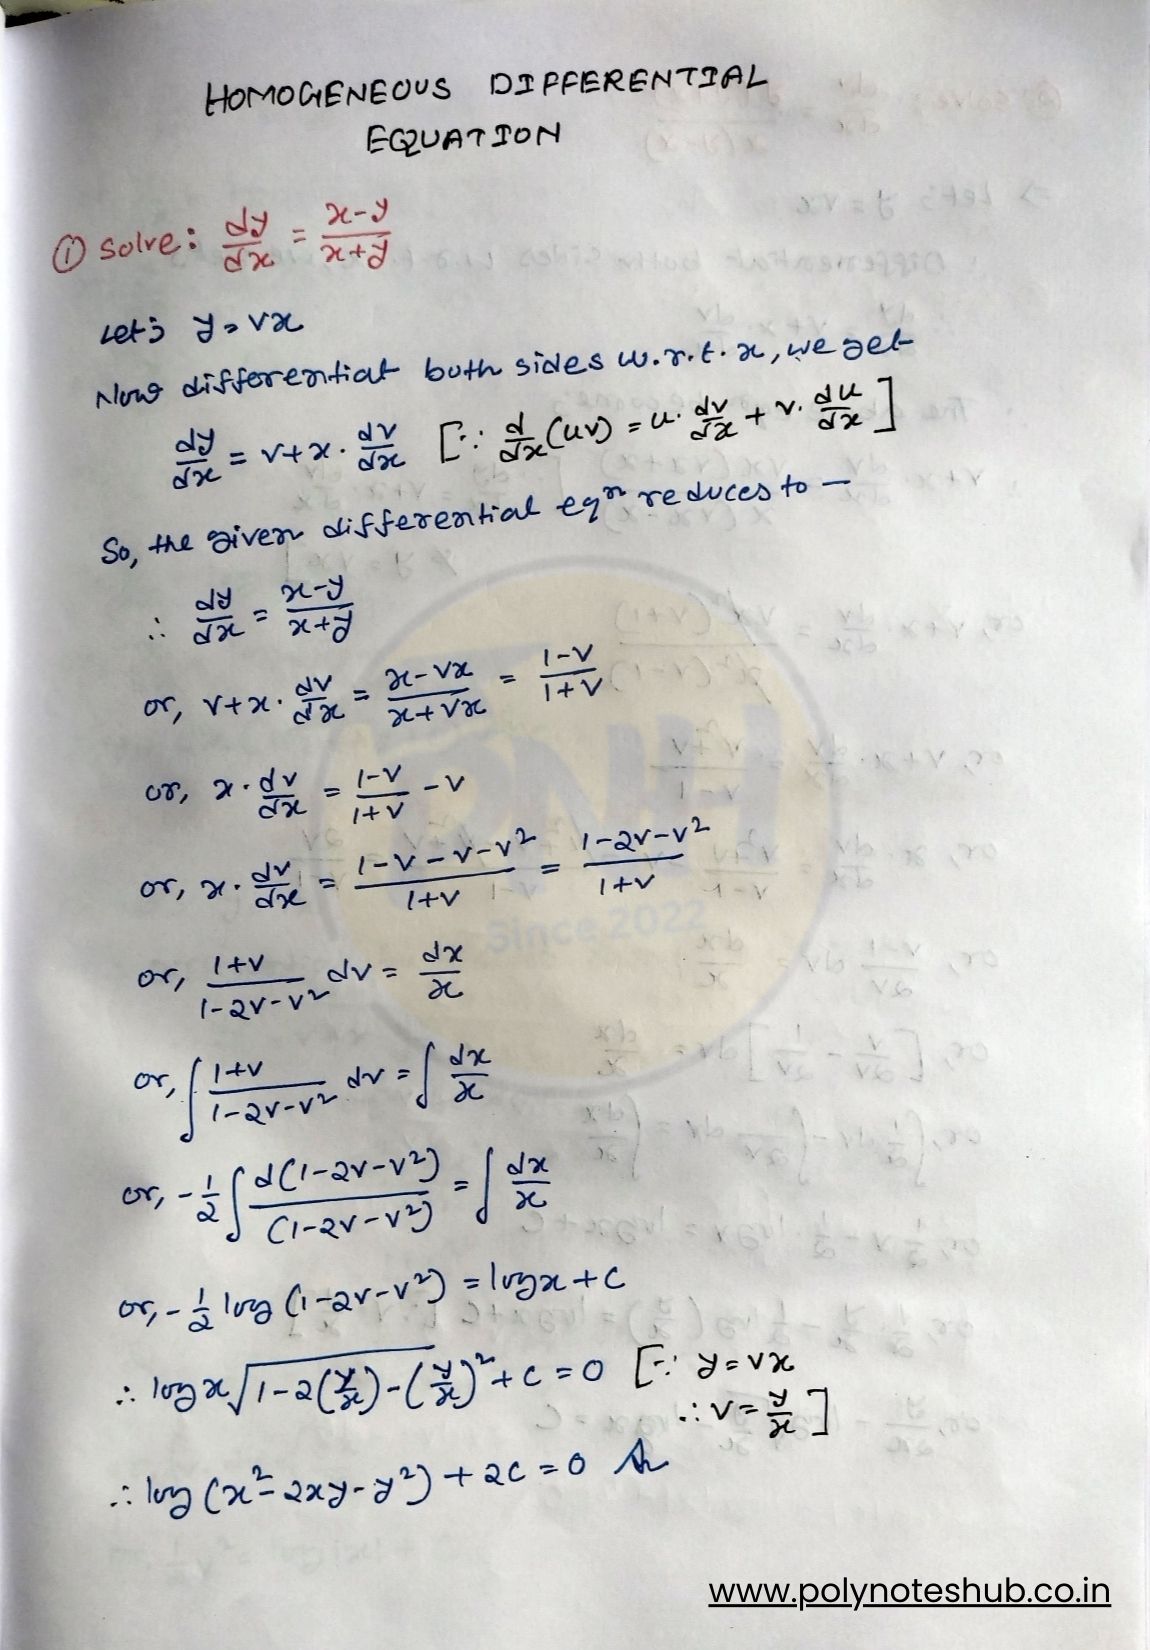 HOMOGENEOUS DIFFERENTIAL
EQUATION
① solve: dy/dx = x-y/x+y
Let's y = vx
Now differentiat both sides w.r.t. x, we get
dy/dx = v+x · dv/dx [∵ d/dx (uv) = u · dv/dx + v · du/dx]
So, the given differential eqⁿ reduces to —
∴ dy/dx = x-y/x+y
or, v+x · dv/dx = x-vx/x+vx = 1-v/1+v
or, x · dv/dx = 1-v/1+v - v
or, x · dv/dx = 1-v-v-v²/1+v = 1-2v-v²/1+v
or, 1+v/1-2v-v² dv = dx/x
or, ∫ 1+v/1-2v-v² dv = ∫ dx/x
or, -1/2 ∫ d(1-2v-v²)/(1-2v-v²) = ∫ dx/x
or, -1/2 log (1-2v-v²) = log x + c
∴ log x √1-2(y/x)-(y/x)² + c = 0 [∵ y = vx
∴ v = y/x]
∴ log (x²-2xy-y²) + 2c = 0
PNH
Since 2022
www.polynoteshub.co.in